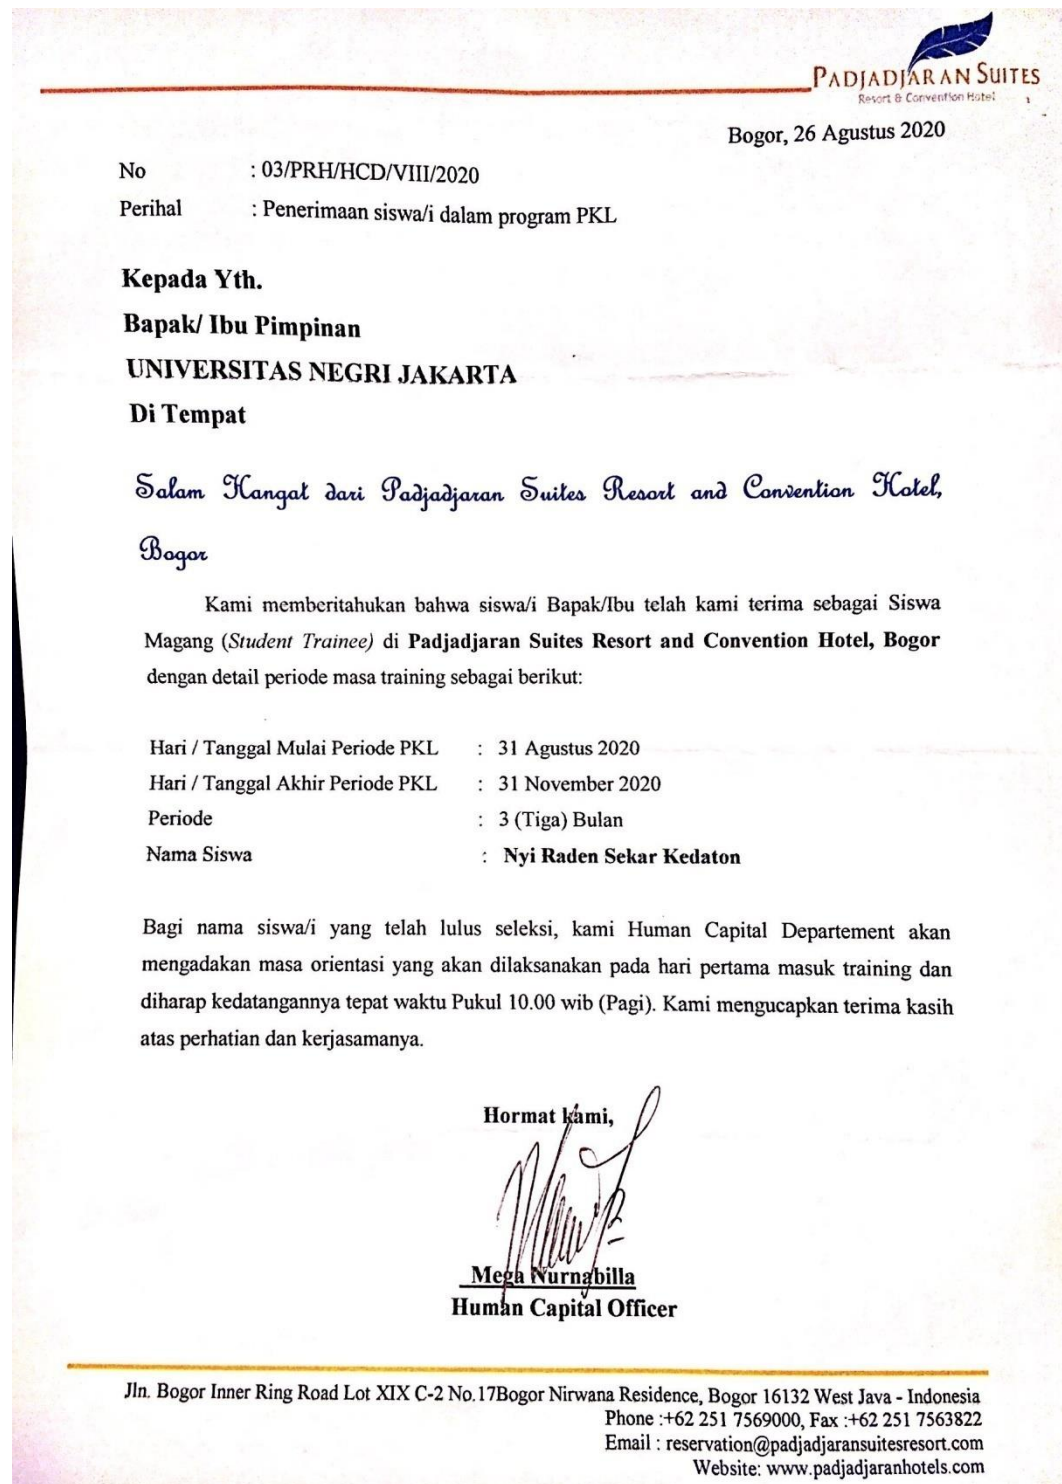 PADJADJARAN SUITES
Resort & Convention Hotel
Bogor, 26 Agustus 2020
No : 03/PRH/HCD/VIII/2020
Perihal : Penerimaan siswa/i dalam program PKL
Kepada Yth.
Bapak/ Ibu Pimpinan
UNIVERSITAS NEGRI JAKARTA
Di Tempat
Salam Hangat dari Padjadjaran Suites Resort and Convention Hotel,
Bogor
Kami memberitahukan bahwa siswa/i Bapak/Ibu telah kami terima sebagai Siswa
Magang (Student Trainee) di Padjadjaran Suites Resort and Convention Hotel, Bogor
dengan detail periode masa training sebagai berikut:
Hari / Tanggal Mulai Periode PKL : 31 Agustus 2020
Hari / Tanggal Akhir Periode PKL : 31 November 2020
Periode : 3 (Tiga) Bulan
Nama Siswa : Nyi Raden Sekar Kedaton
Bagi nama siswa/i yang telah lulus seleksi, kami Human Capital Departement akan
mengadakan masa orientasi yang akan dilaksanakan pada hari pertama masuk training dan
diharap kedatangannya tepat waktu Pukul 10.00 wib (Pagi). Kami mengucapkan terima kasih
atas perhatian dan kerjasamanya.
Hormat kami,
Mega Nurnabilla
Human Capital Officer
Jln. Bogor Inner Ring Road Lot XIX C-2 No.17Bogor Nirwana Residence, Bogor 16132 West Java - Indonesia
Phone :+62 251 7569000, Fax :+62 251 7563822
Email : reservation@padjadjaransuitesresort.com
Website: www.padjadjaranhotels.com